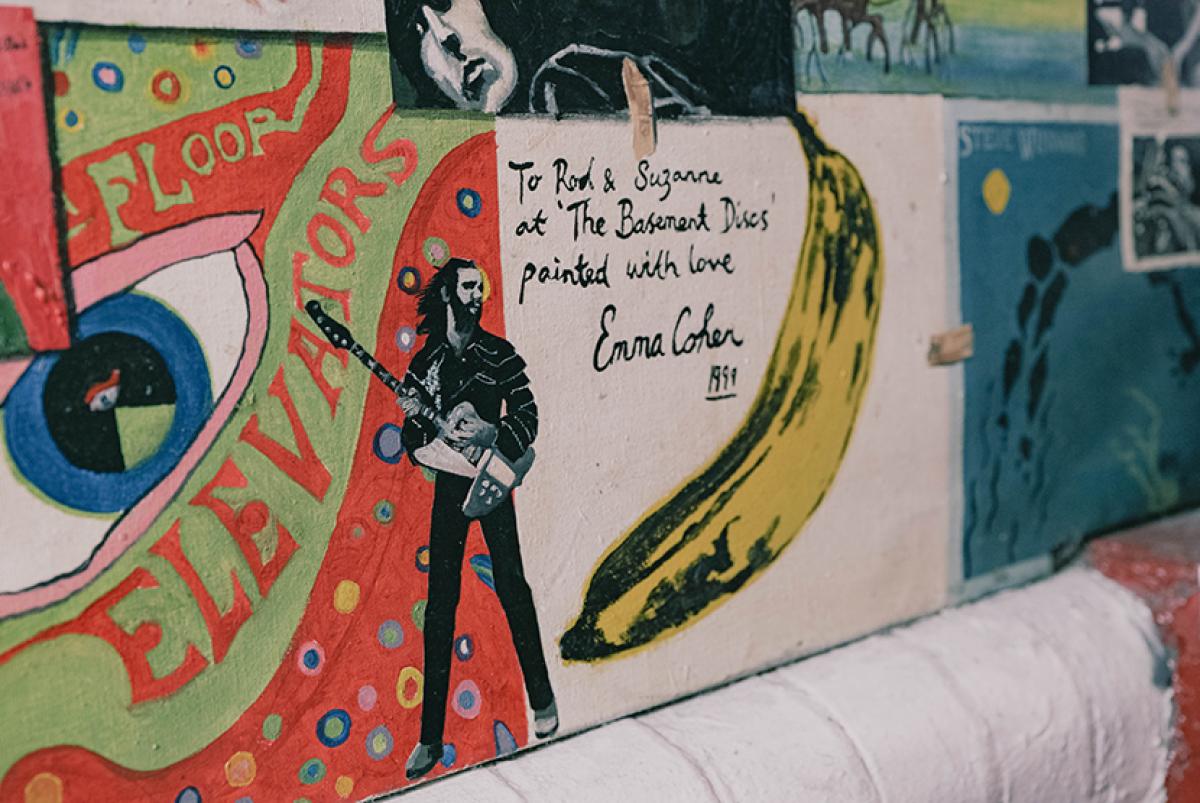 FLOOR
ELEVATORS
To Rod & Suzanne
at 'The Basement Discs'
painted with love
Emma Cohen
1999
STEVE